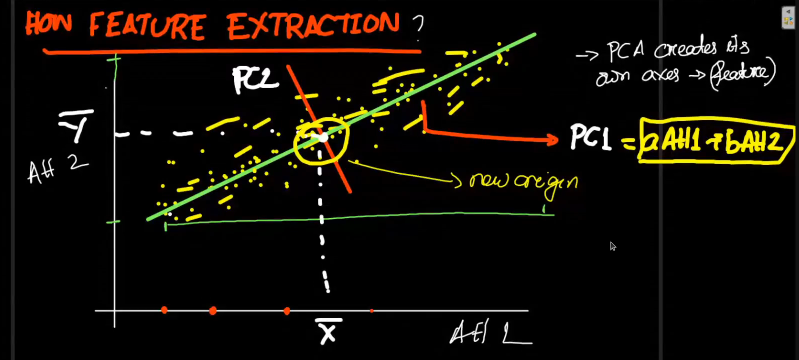 HOW FEATURE EXTRACTION?
PC2
→ PCA creates its
own axes → (feature)
Y
PC1 = aAtt1 + bAtt2
Att 2
new origin
X
Att 1